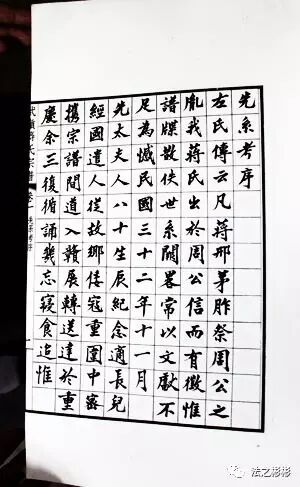 先系考序
左氏傳云凡蔣邢茅胙祭周公之
胤我蔣氏出於周公信而有徵惟
譜牒散佚世系闕畧常以文獻不
足為憾民國三十二年十一月
先太夫人八十生辰紀念適長兒
經國遣人從故鄉倭寇重圍中密
攜宗譜間道入贛展轉送達於重
慶余三復循誦幾忘寢食追惟
武嶺蔣氏宗譜 卷一 先系考序 一
法之彬彬